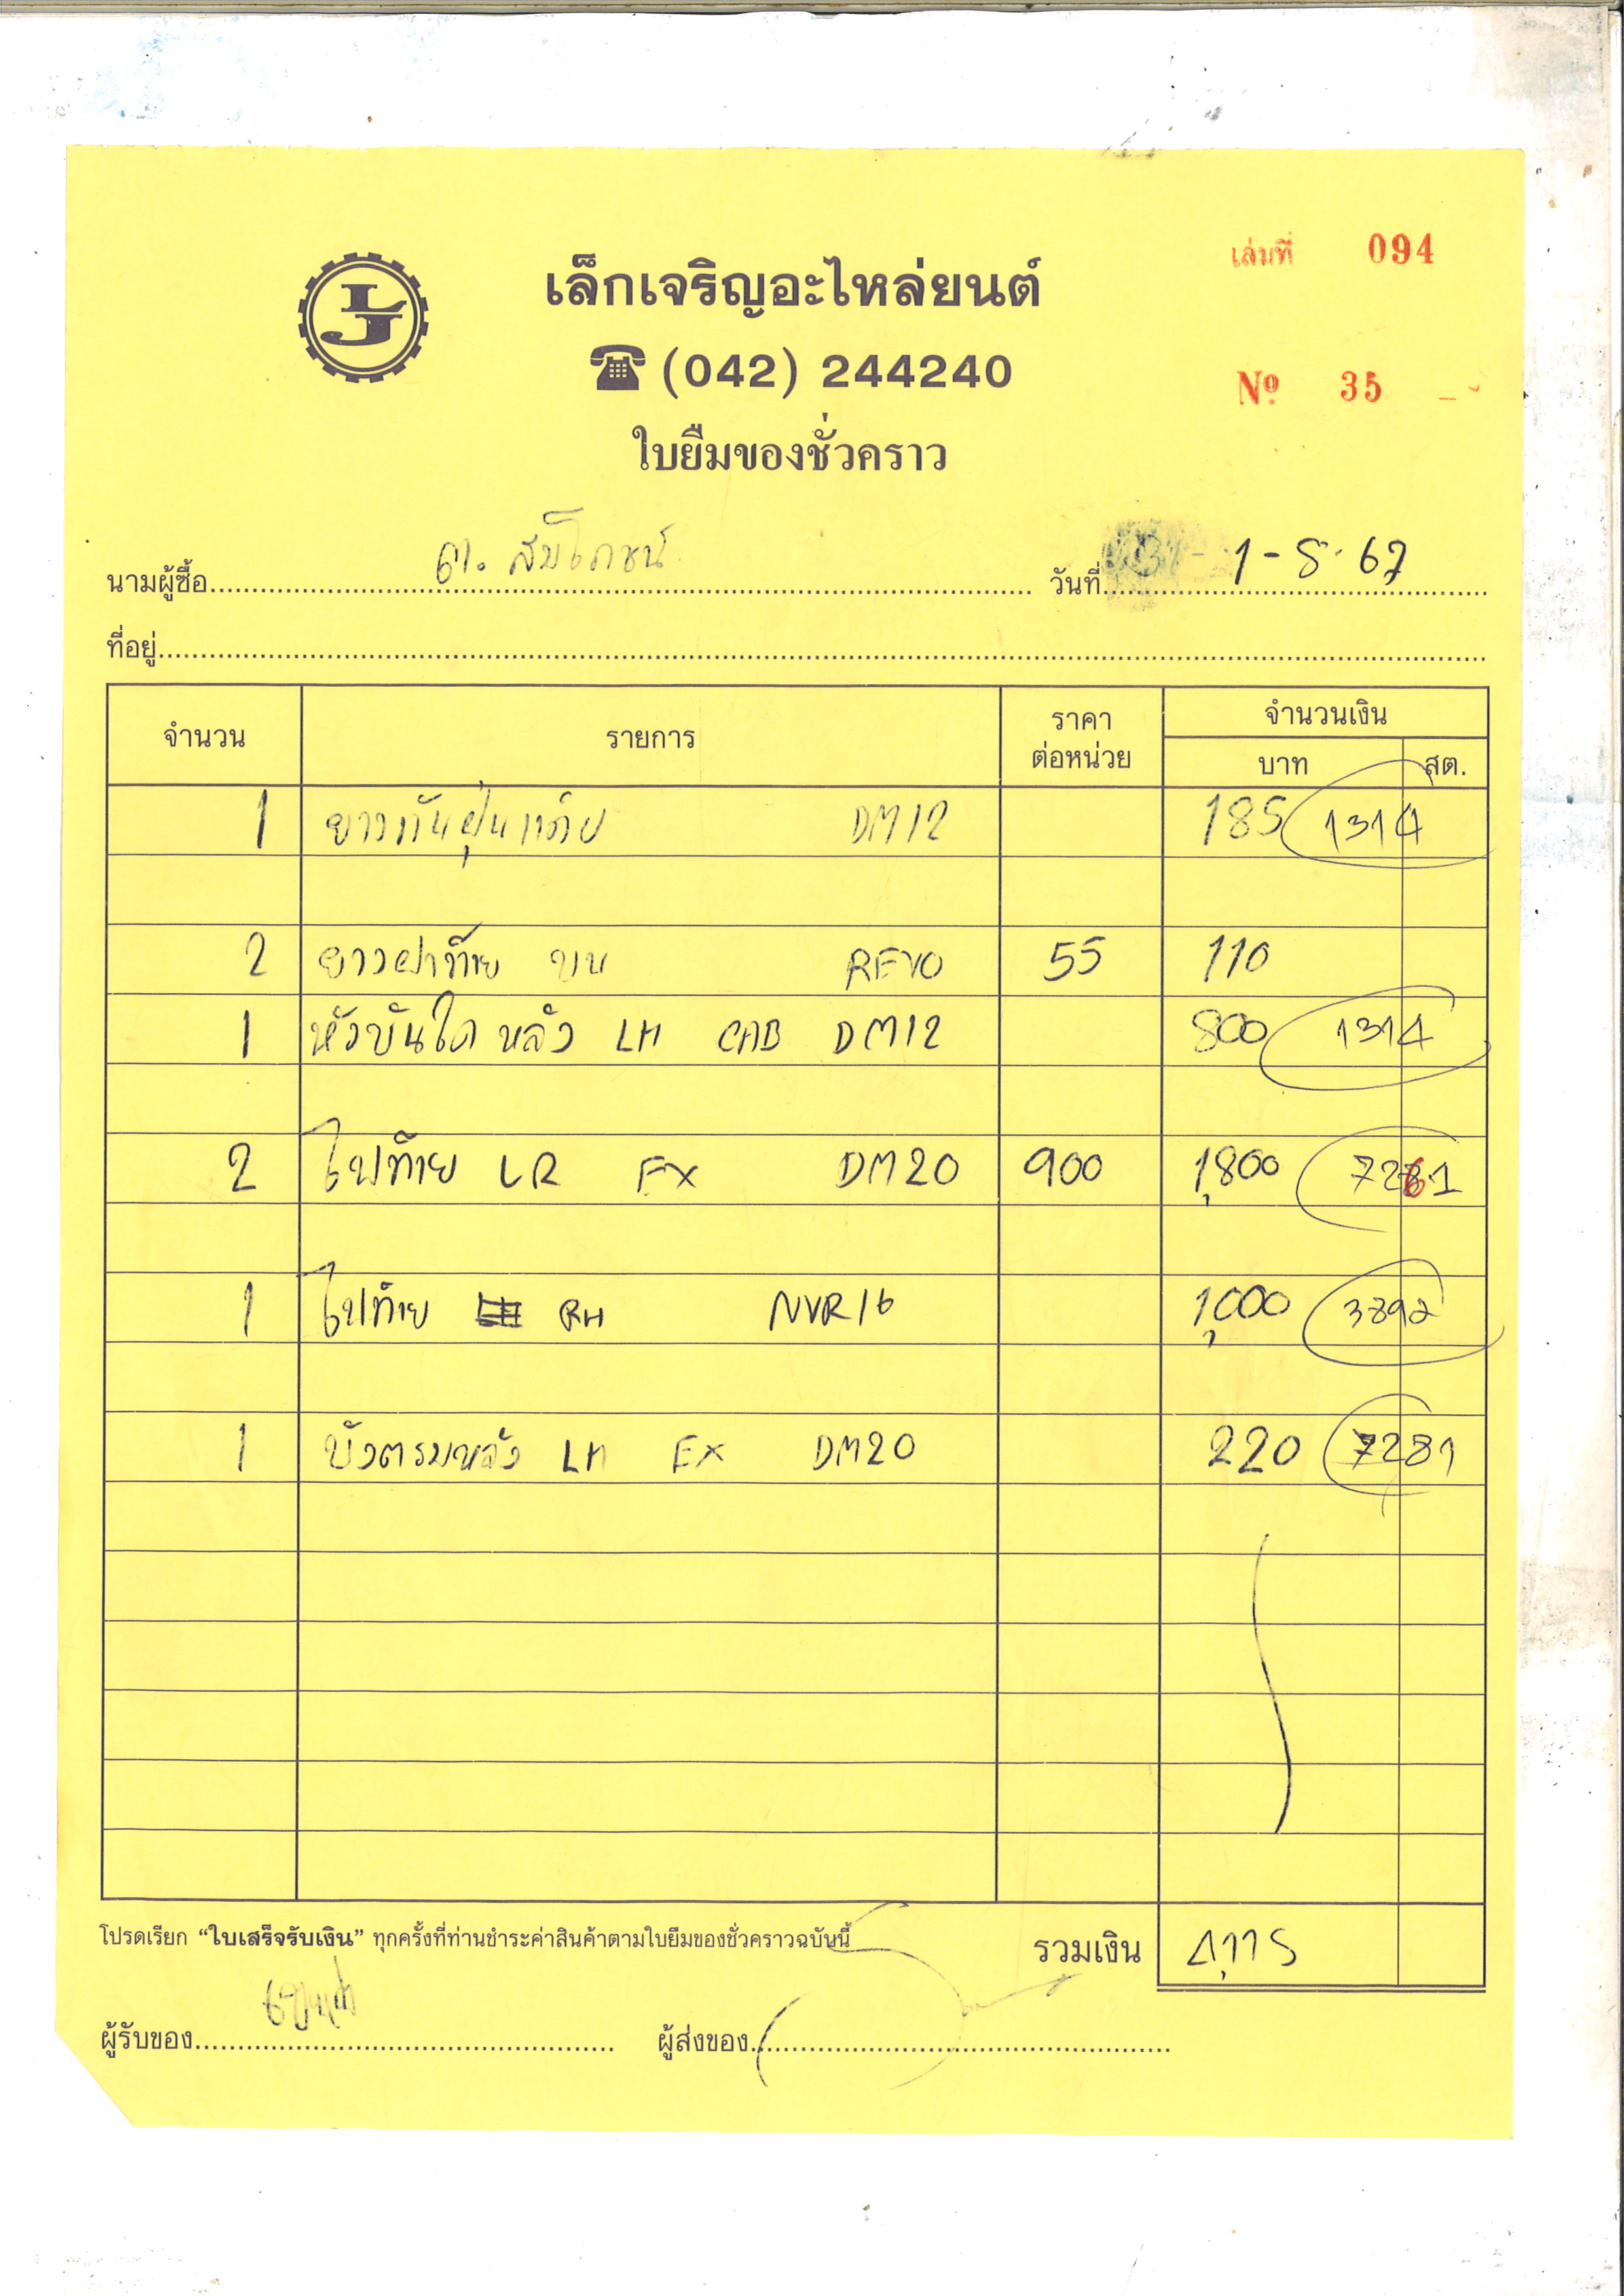 เล่มที่ 094
LJ
เล็กเจริญอะไหล่ยนต์
(042) 244240
Nº 35
ใบยืมของชั่วคราว
นามผู้ซื้อ ต. สมโภชน์ วันที่ 1-8-67
ที่อยู่
จำนวน รายการ ราคาต่อหน่วย จำนวนเงิน
บาท สต.
1 ยางกันฝุ่น DM12 185 1314
2 ยางฝาท้าย บน REVO 55 110
1 หัวบันใด หลัง LH CAB DM12 800 1314
2 ไฟท้าย LR EX DM20 900 1,800 7261
1 ไฟท้าย RH NVR16 1,000 3892
1 บังตรมหลัง LH EX DM20 220 7281
โปรดเรียก “ใบเสร็จรับเงิน” ทุกครั้งที่ท่านชำระค่าสินค้าตามใบยืมของชั่วคราวฉบับนี้
รวมเงิน 4,115
ผู้รับของ ผู้ส่งของ